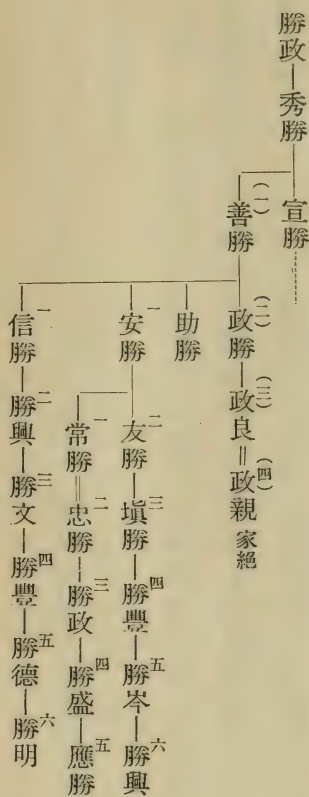 勝政―秀勝
宣勝
(一)善勝
(二)政勝―(三)政良‖(四)政親 家絶
助勝
一安勝
二友勝―三塡勝―四勝豐―五勝岑―六勝興
一常勝‖二忠勝―三勝政―四勝盛―五應勝
一信勝―二勝興―三勝文―四勝豐―五勝德―六勝明